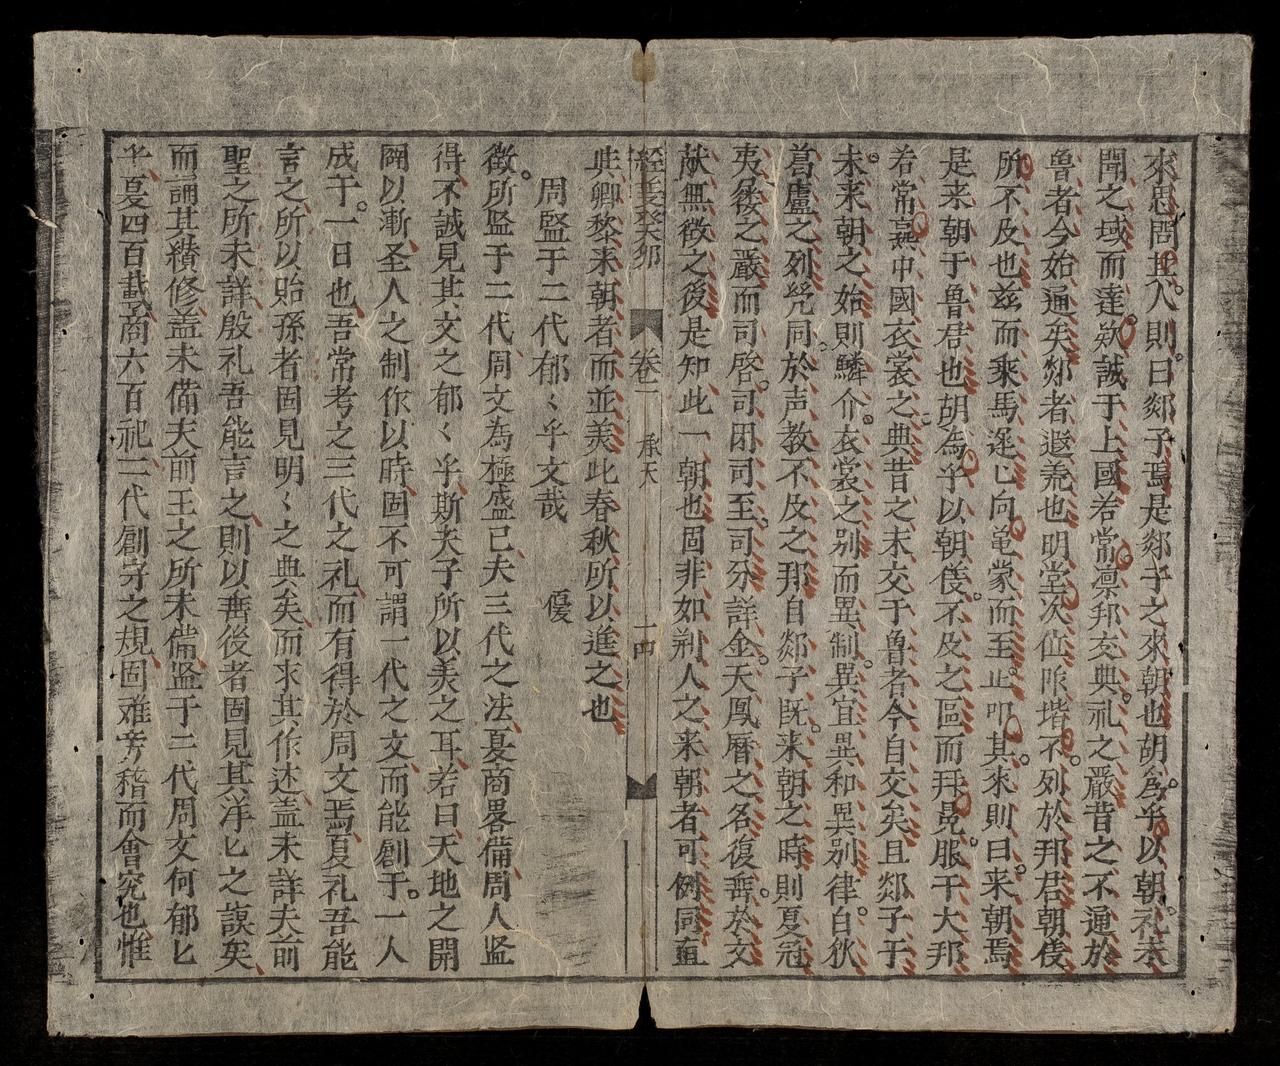 來思問其人則曰郯子焉是郯子之來朝也胡爲乎以朝礼未
聞之域而達欵誠于上國若常凛邦交典礼之嚴昔之不通於
魯者今始通矣郯者遐羗也明堂次位阼堦不列於邦君朝儀
所不及也兹而乘馬遥匕向黽蒙而至止叩其來則曰来朝焉
是来朝于魯君也胡為乎以朝儀不及之區而拜冕服于大邦
若常慕中國衣裳之典昔之未交于魯者今自交矣且郯子于
未来朝之始則鱗介衣裳之别而異制異宜異和異别律白狄
葛盧之列凭同於声教不及之邦自郯子既来朝之時則夏冠
夷後之嚴而司啓司閉司至司分詳金天鳳曆之名復舞於文
献無徴之後是知此一朝也固非如荆人之来朝者可例同直
經義癸夘 卷二 承天 十四
與卿黎来朝者而並美此春秋所以進之也
周監于二代郁〻乎文哉 優
徵所監于二代周文為極盛已夫三代之法夏商畧備周人监
得不誠見其文之郁〻乎斯夫子所以美之耳若曰天地之開
闢以漸圣人之制作以時固不可謂一代之文而能創于一人
成于一日也吾常考之三代之礼而有得於周文焉夏礼吾能
言之所以貽孫者固見明〻之典矣而求其作述盖未詳夫前
聖之所未詳殷礼吾能言之則以垂後者固見其洋匕之謨矣
而誦其纉修盖未備夫前王之所未備监于二代周文何郁匕
乎夏四百載商六百祀二代創守之規固难旁稽而會究也惟